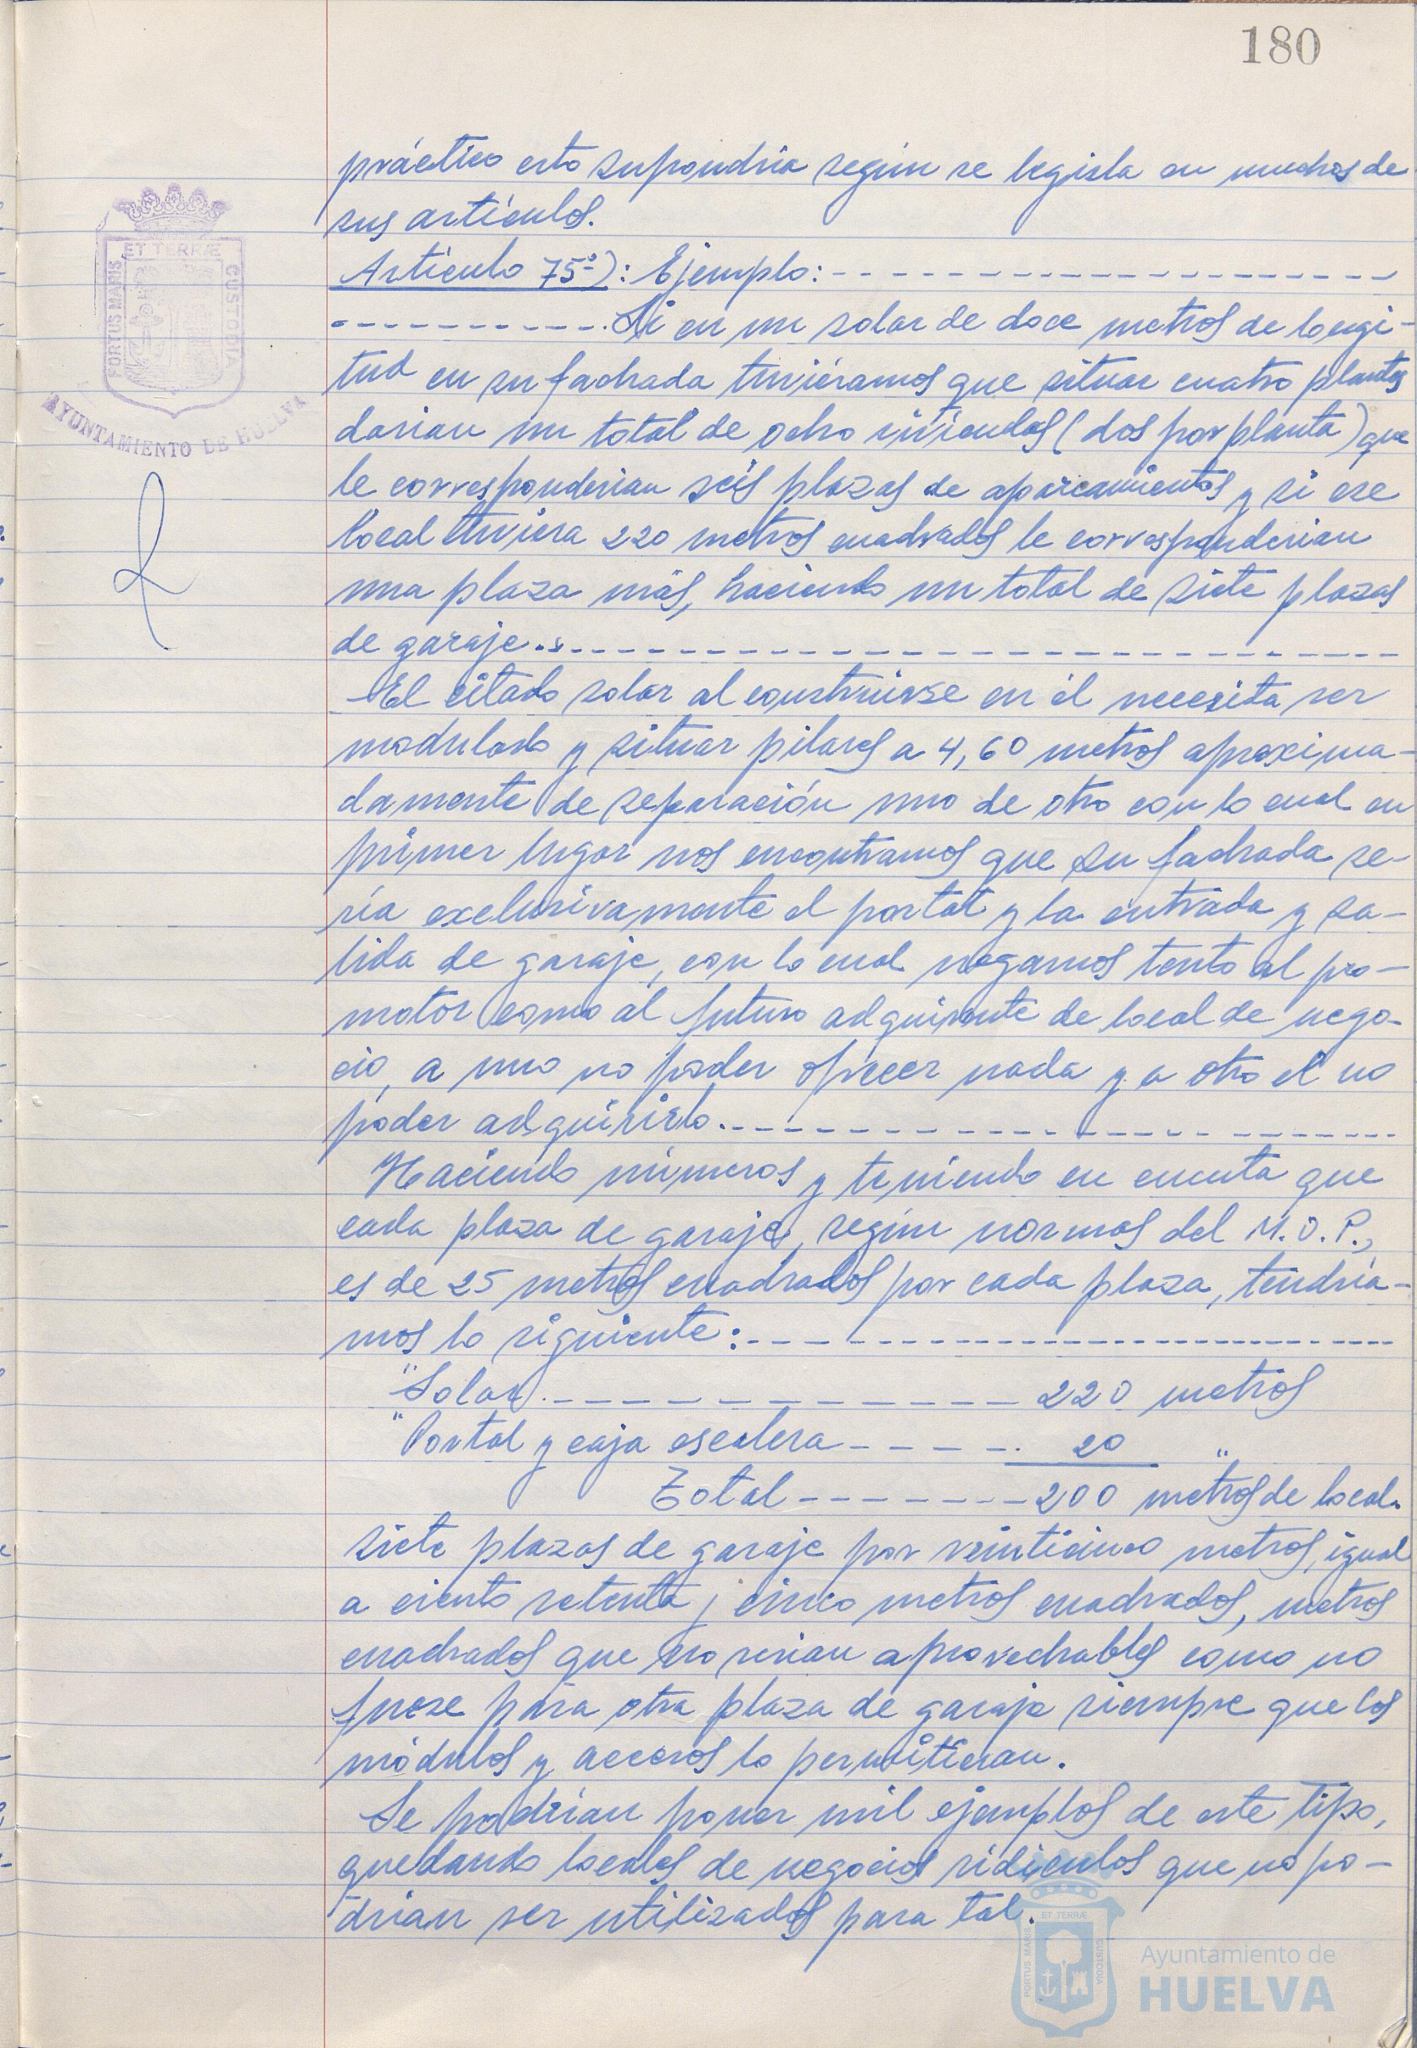 180
práctico esto supondria según se legisla en muchos de
sus artículos.
Artículo 75º): Ejemplo:
Si en un solar de doce metros de longi-
tud en su fachada tuviéramos que situar cuatro plantas
darian un total de ocho viviendas (dos por planta) que
le corresponderian seis plazas de aparcamientos y si ese
local tuviera 220 metros cuadrados le corresponderian
una plaza más, haciendo un total de siete plazas
de garaje.
El citado solar al construirse en él necesita ser
modulado y situar pilares a 4,60 metros aproxima-
damente de separación uno de otro con lo cual en
primer lugar nos encontramos que su fachada se-
ría exclusivamente el portal y la entrada y sa-
lida de garaje, con lo cual negamos tanto al pro-
motor como al futuro adquirente de local de nego-
cio, a uno no poder ofrecer nada y a otro el no
poder adquirirlo.
Haciendo números y teniendo en cuenta que
cada plaza de garaje, según normas del M.O.P.,
es de 25 metros cuadrados por cada plaza, tendría-
mos lo siguiente:
"Solar 220 metros
"Portal y caja escalera 20 "
Total 200 metros de local.
siete plazas de garaje por veinticinco metros, igual
a ciento setenta y cinco metros cuadrados, metros
cuadrados que no serian aprovechables como no
fuese para otra plaza de garaje siempre que los
módulos y accesos lo permitieran.
Se podrían poner mil ejemplos de este tipo,
quedando locales de negocios ridiculos que no po-
drian ser utilizados para tal.
PORTUS MARIS ET TERRÆ CUSTODIA
AYUNTAMIENTO DE HUELVA
PORTUS MARIS ET TERRÆ CUSTODIA
Ayuntamiento de
HUELVA